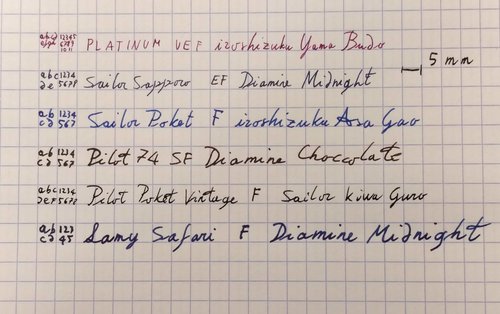 abcd 12345 PLATINUM UEF iroshizuku Yama Budo
efgh 6789
1011
abc 1234 Sailor Sapporo EF Diamine Midnight 5 mm
de 5678
ab 1234 Sailor Poket F iroshizuku Asa Gao
cd 567
ab 1234 Pilot 74 SF Diamine Choccolate
cd 567
abc 1234 Pilot Poket Vintage F Sailor Kiwa Guro
def 5678
ab 123 Lamy Safari F Diamine Midnight
cd 45